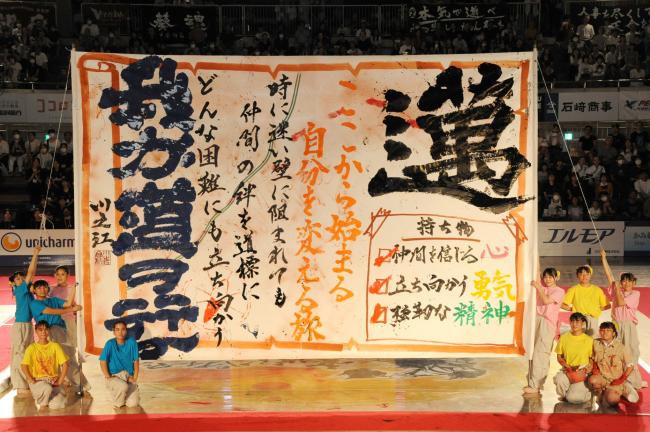 紫魂
本気で遊べ
ココ
石崎商事
unicharm
エルモア
邁
ここから始まる
自分を変える旅
持ち物
仲間を信じる心
立ち向かう勇気
強靭な精神
時に迷い壁に阻まれても
仲間の絆を道標に
どんな困難にも立ち向かう
我が道ヲ行
川之江